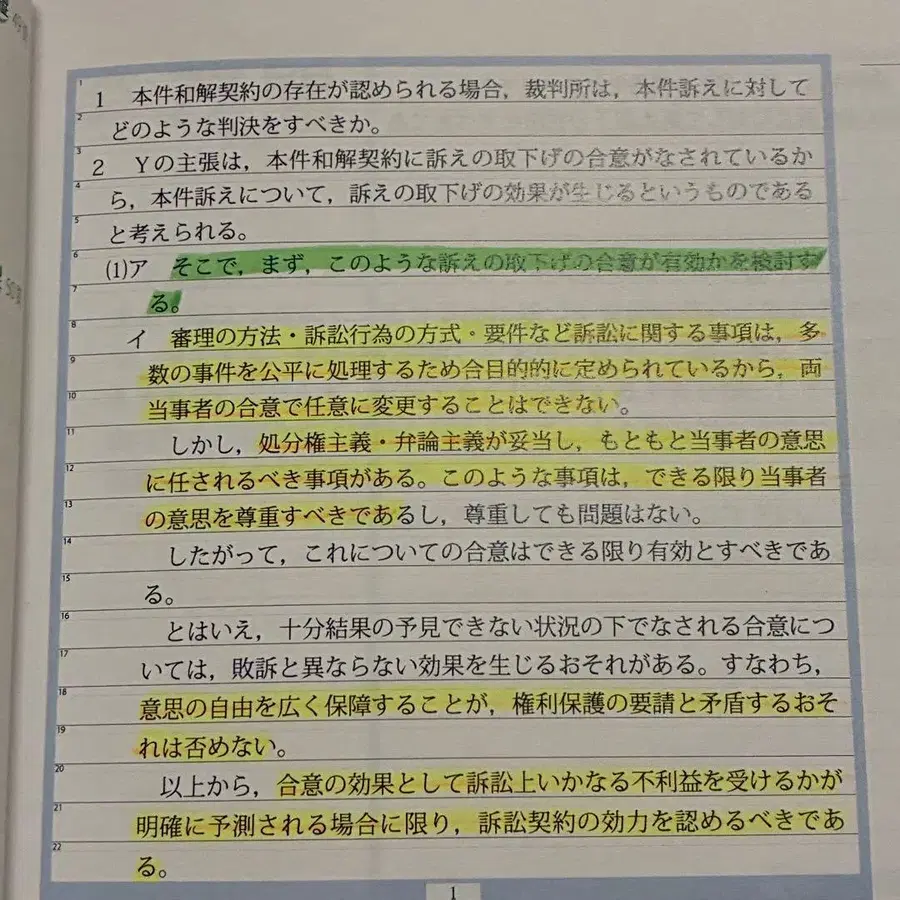 1　本件和解契約の存在が認められる場合，裁判所は，本件訴えに対して
どのような判決をすべきか。
2　Yの主張は，本件和解契約に訴えの取下げの合意がなされているか
ら，本件訴えについて，訴えの取下げの効果が生じるというものである
と考えられる。
(1)ア　そこで，まず，このような訴えの取下げの合意が有効かを検討す
る。
イ　審理の方法・訴訟行為の方式・要件など訴訟に関する事項は，多
数の事件を公平に処理するため合目的的に定められているから，両
当事者の合意で任意に変更することはできない。
しかし，処分権主義・弁論主義が妥当し，もともと当事者の意思
に任されるべき事項がある。このような事項は，できる限り当事者
の意思を尊重すべきであるし，尊重しても問題はない。
したがって，これについての合意はできる限り有効とすべきであ
る。
とはいえ，十分結果の予見できない状況の下でなされる合意につ
いては，敗訴と異ならない効果を生じるおそれがある。すなわち，
意思の自由を広く保障することが，権利保護の要請と矛盾するおそ
れは否めない。
以上から，合意の効果として訴訟上いかなる不利益を受けるかが
明確に予測される場合に限り，訴訟契約の効力を認めるべきであ
る。
1